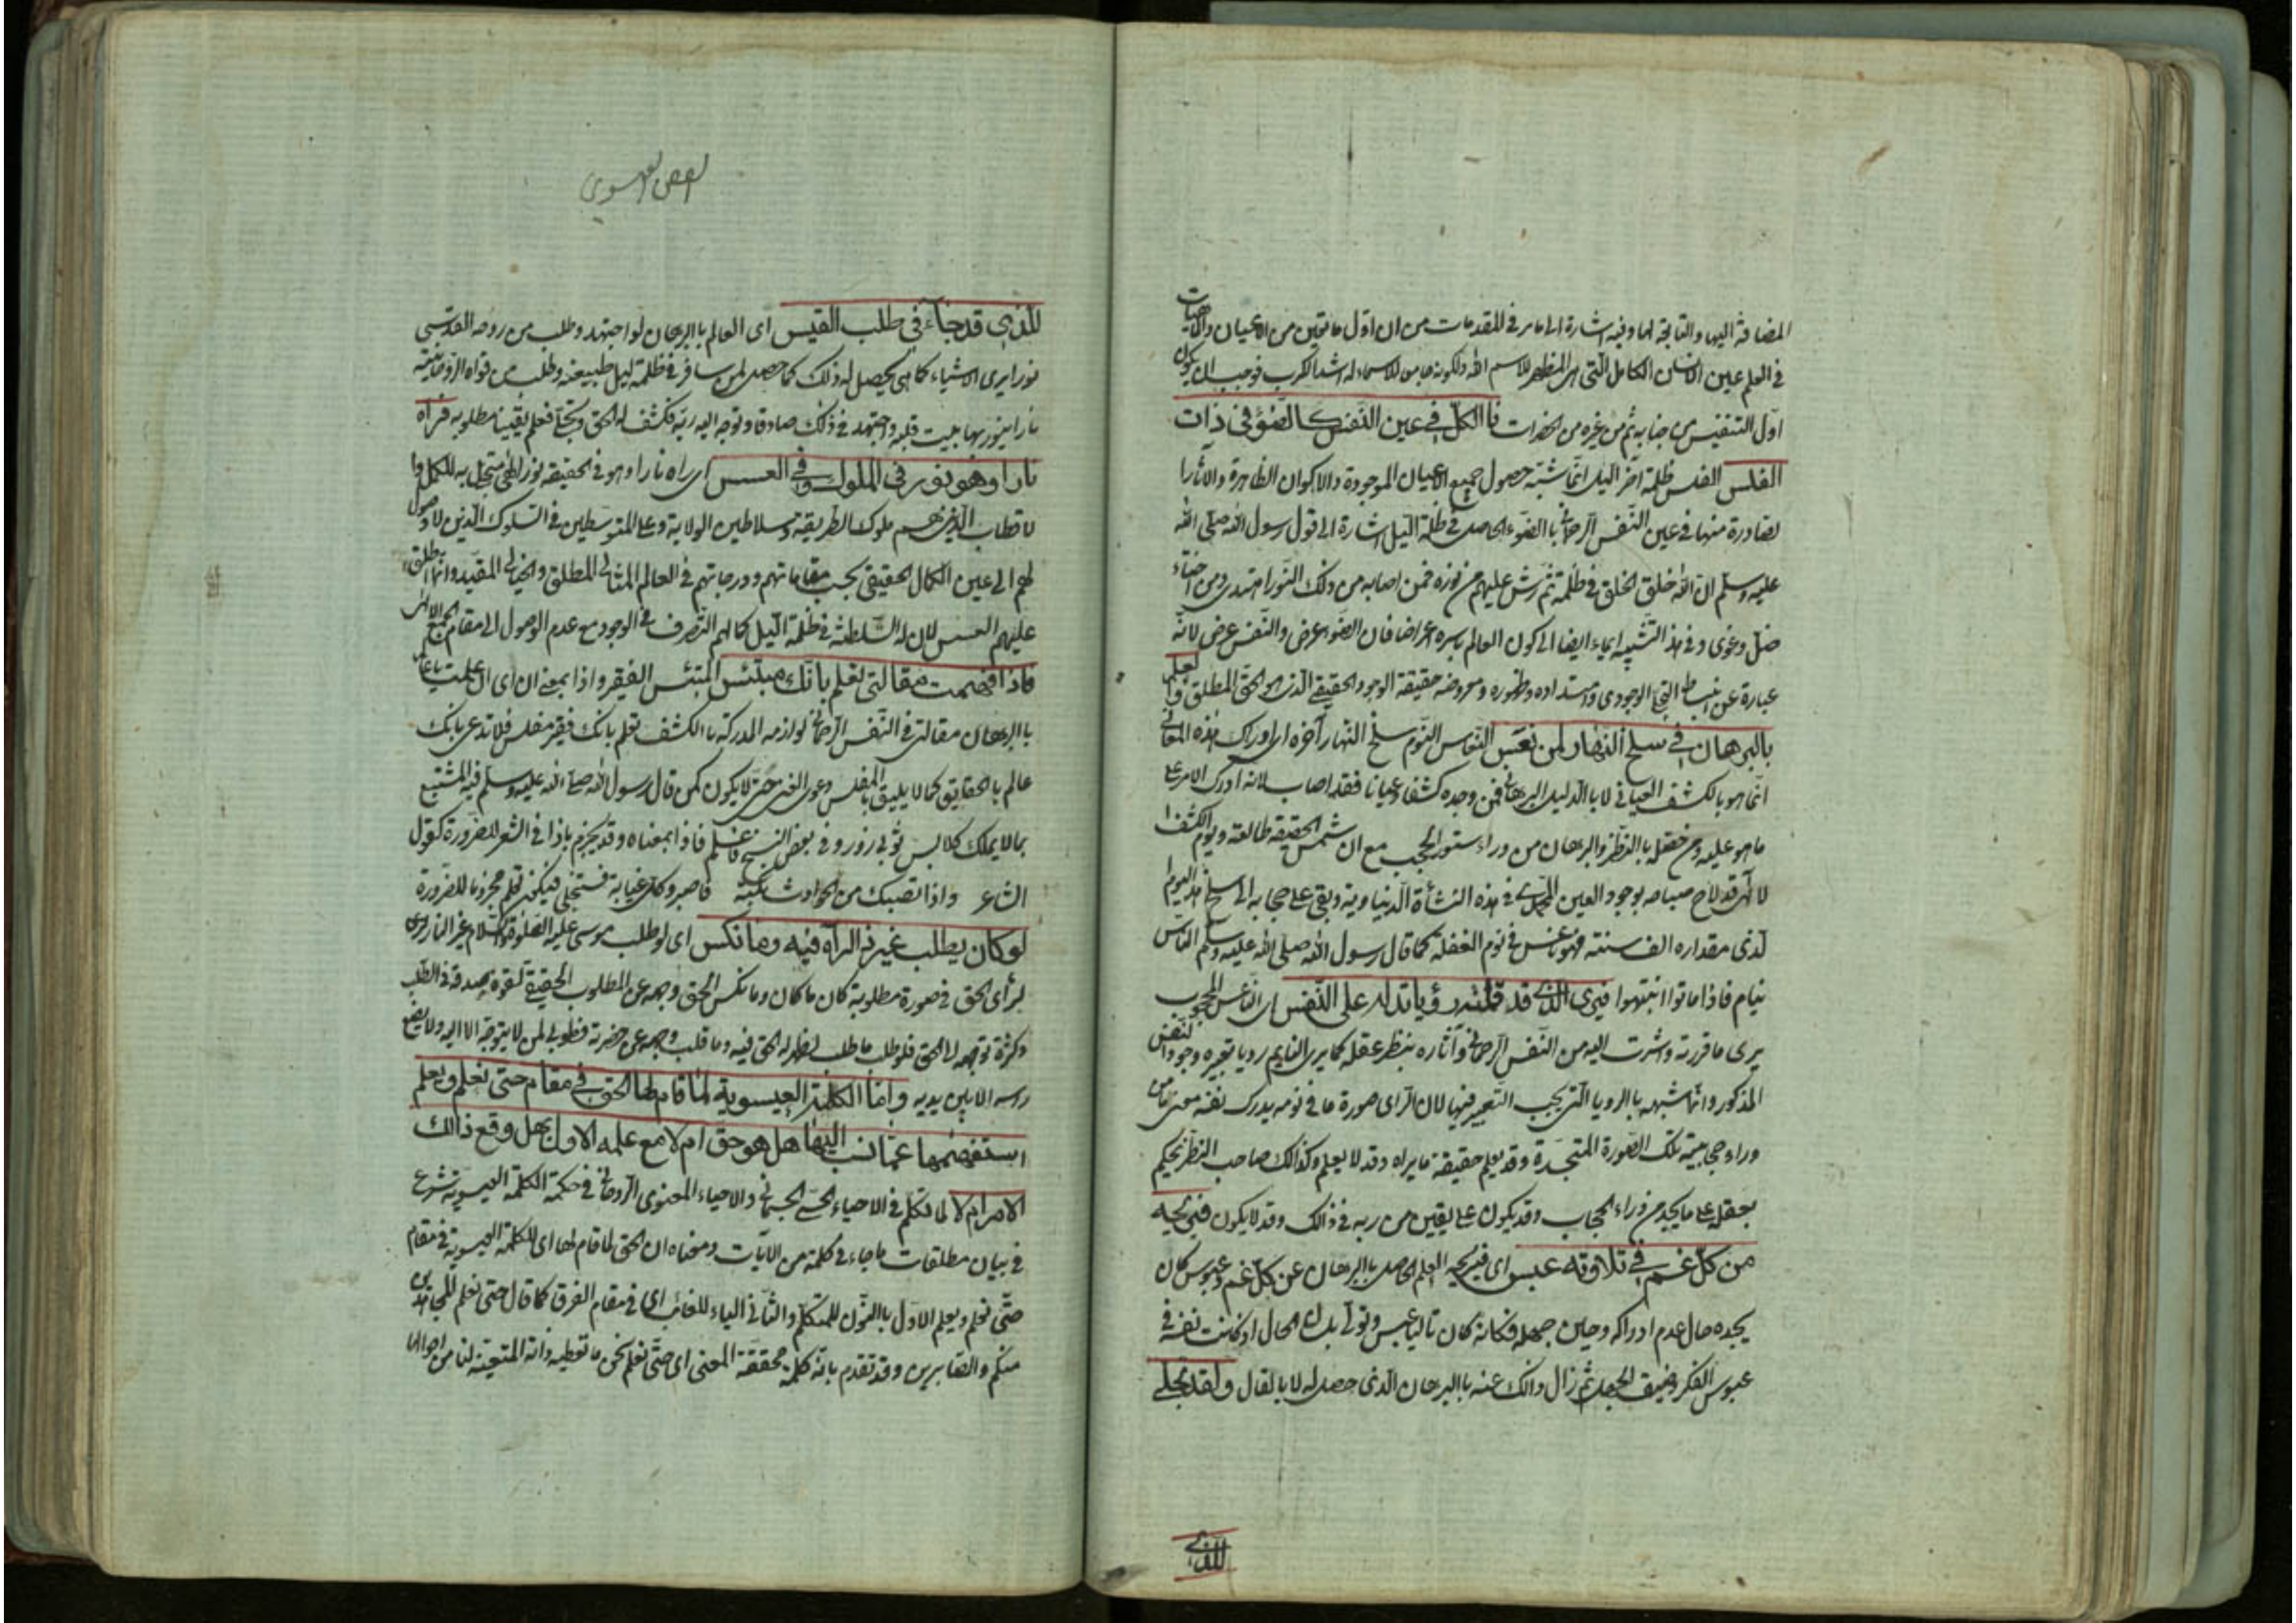 المضافة اليها والتابعة لها وفيه اشارة الى ما مر في المقدمات من ان اول ما تعين من الاعيان والماهيات
في العلم عين الانسان الكامل التي هي المظهر للاسم الله ولكونه جامعا للاسماء له اشد الكرب فوجب ان يكون
اول التنفيس من جنابه ثم من غيره من الحضرات فالكل في عين النفس كالضوء في ذات
الغلس الغلس ظلمة آخر الليل انما شبه حصول جميع الاعيان الموجودة والاكوان الظاهرة والاثار ا
لصادرة منها في عين النفس الرحماني بالضوء الحاصل في ظلمة الليل اشارة الى قول رسول الله صلى الله
عليه وسلم ان الله خلق الخلق في ظلمة ثم رش عليهم من نوره فمن اصابه من ذلك النور اهتدى ومن اخطاء
ضل وغوى وفي هذا التشبيه ايماء ايضا الى كون العالم باسره اعراضا فان الضوء عرض والنفس عرض لانه
عبارة عن انبساط التجلي الوجودي وامتداده وظهوره ومعروضه حقيقة الوجود الحقيقي الذي هو الحق المطلق والعلم
بالبرهان في سلخ النهار لمن نعس النعاس النوم سلخ النهار آخره اى ادراك هذه المعاني
انما هو بالكشف العياني لا بالدليل البرهاني فمن وجده كشفا وعيانا فقد اصاب لانه ادرك الامر على
ما هو عليه ومن تعقله بالنظر والبرهان من وراء ستور الحجب مع ان شمس الحقيقة طالعة ويوم الكشف ا
لالهي قد لاح صباحه بوجود العين المحمدي في هذه النشأة الدنياوية وبقي على حجابه الى سلخ هذا اليوم ا
لذي مقداره الف سنة فهو ناعس في نوم الغفلة كما قال رسول الله صلى الله عليه وسلم الناس
نيام فاذا ماتوا انتبهوا فيرى الذي قد قلته رؤيا تدل على النفس اى الناعس المحجوب
يرى ما قررته واشرت اليه من النفس الرحماني وآثاره بنظر عقله كما يرى النايم رويا تعبيره وجود النفس
المذكور وانما شبهه بالرويا التي يجب التعبير فيها لان الرائى صورة ما في نومه يدرك نفسه معنى ما من
وراء حجابية تلك الصورة المتجسدة وقد يعلم حقيقة ما يراه وقد لا يعلم وكذالك صاحب النظر يحكم
بعقله على ما يجد من وراء الحجاب وقد يكون على يقين من ربه في ذالك وقد لا يكون فيريحه
من كل غم في تلاوته عبس اى فيريحه العلم الحاصل بالبرهان عن كل غم وعبوس كان
يجده حال عدم ادراكه وحين جهله فكانه كان تاليا عبس وتولى بلسان الحال اذ كانت نفسه في
عبوس الفكر وضيق الجهل ثم زال ذالك عنه باالبرهان الذي حصل له لا بالقال ولقد تجلى
للذي
الفص العيسوي
للذي قد جاء في طلب القبس اى العالم باالبرهان لو اجتهد وطلب من روحه القدسي
نورا يرى الاشياء كما هي يحصل له ذلك كما حصل لمن سافر في ظلمة ليل طبيعته وطلب من قواه الروحانية
نارا ينور بها بيت قلبه واجتهد في ذلك صادقا وتوجه اليه ربه فكشف له الحق وتجلى فعلم يقينا مطلوبه فرآه
نارا وهو نور في الملوك وفي العسس اى راه نارا وهو في الحقيقة نور الهي متجلى به للكمل وا
لاقطاب الذين هم ملوك الطريقة وسلاطين الولاية وعلى المتوسطين في السلوك الذين لا وصول
لهم الى عين الكمال الحقيقي بحسب مقاماتهم ودرجاتهم في العالم المثالي المطلق والخيالي المقيد وانما اطلق
عليهم العسس لان له السلطنة في ظلمة الليل كما لهم التصرف في الوجود مع عدم الوصول الى مقام الجمع الالهي
فاذا فهمت مقالتي تعلم بانك مبتئس المبتئس الفقير واذا بمعنى ان اى ان علمت يا عالم
باالبرهان مقالتي في النفس الرحماني ولوازمه المدركة باالكشف تعلم بانك فقير مفلس فلا تدعى بانك
عالم بالحقايق كما لا يليق بالمفلس دعوى الغنى حتى لا يكون كمن قال رسول الله صلى الله عليه وسلم فيه المتشبع
بما لا يملك كلابس ثوبي زور وفي بعض النسخ فاعلم فاذا بمعناه وقد يجزم باذا في الشعر للضرورة كقول
الشاعر واذا تصبك من الحوادث نكبة فاصبر وكل غيابة فستنجلي فيكون تعلم مجزوما للضرورة
لو كان يطلب غير ذا لرآه فيه وما نكس اى لو طلب موسى عليه الصلوة والسلام غير النار
لرأى الحق في صورة مطلوبة كان ما كان وما نكس الحق وجهه عن المطلوب الحقيقي لقوة صدقه في الطلب
وكثرة توجهه لا الحق فلو طلب ما طلب لظهر له الحق فيه وما قلب وجهه عن حضرته فطوبى لمن لا يتوجه الا اليه ولا يضع
راسه الا بين يديه واما الكلمة العيسوية لما قام لها الحق في مقام حتى نعلم ويعلم
استفهمها عما نسب اليها هل هو حق ام لا مع علمه الاول بهل وقع ذالك
الامر ام لا لما تكلم في الاحياء الحسي الجسماني والاحياء المعنوى الروحاني في حكمة الكلمة العيسوية شرع
في بيان مطلقات ما جاء في كلمته من الآيات ومعناه ان الحق لما قام لها اى للكلمة العيسوية في مقام
حتى نعلم ويعلم الاول باالنون للمتكلم والثاني الياء للغائب اى في مقام الفرق كما قال حتى نعلم المجاهدين
منكم والصابرين وقد تقدم بانه كلمة محققة المعنى اى حتى نعلم نحن ما تعطيه ذاته المتعينة لنا من احوالها